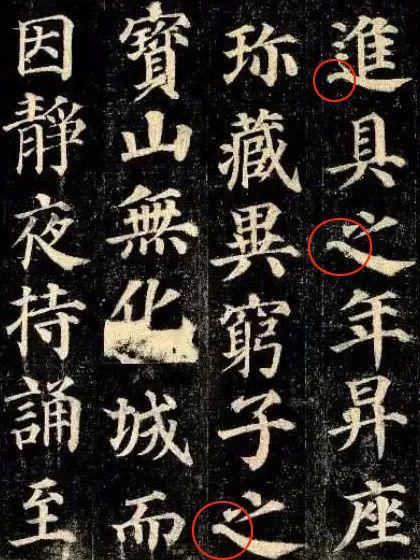 進具之年昇座
珎藏異窮子之
寶山無化城而
因靜夜持誦至